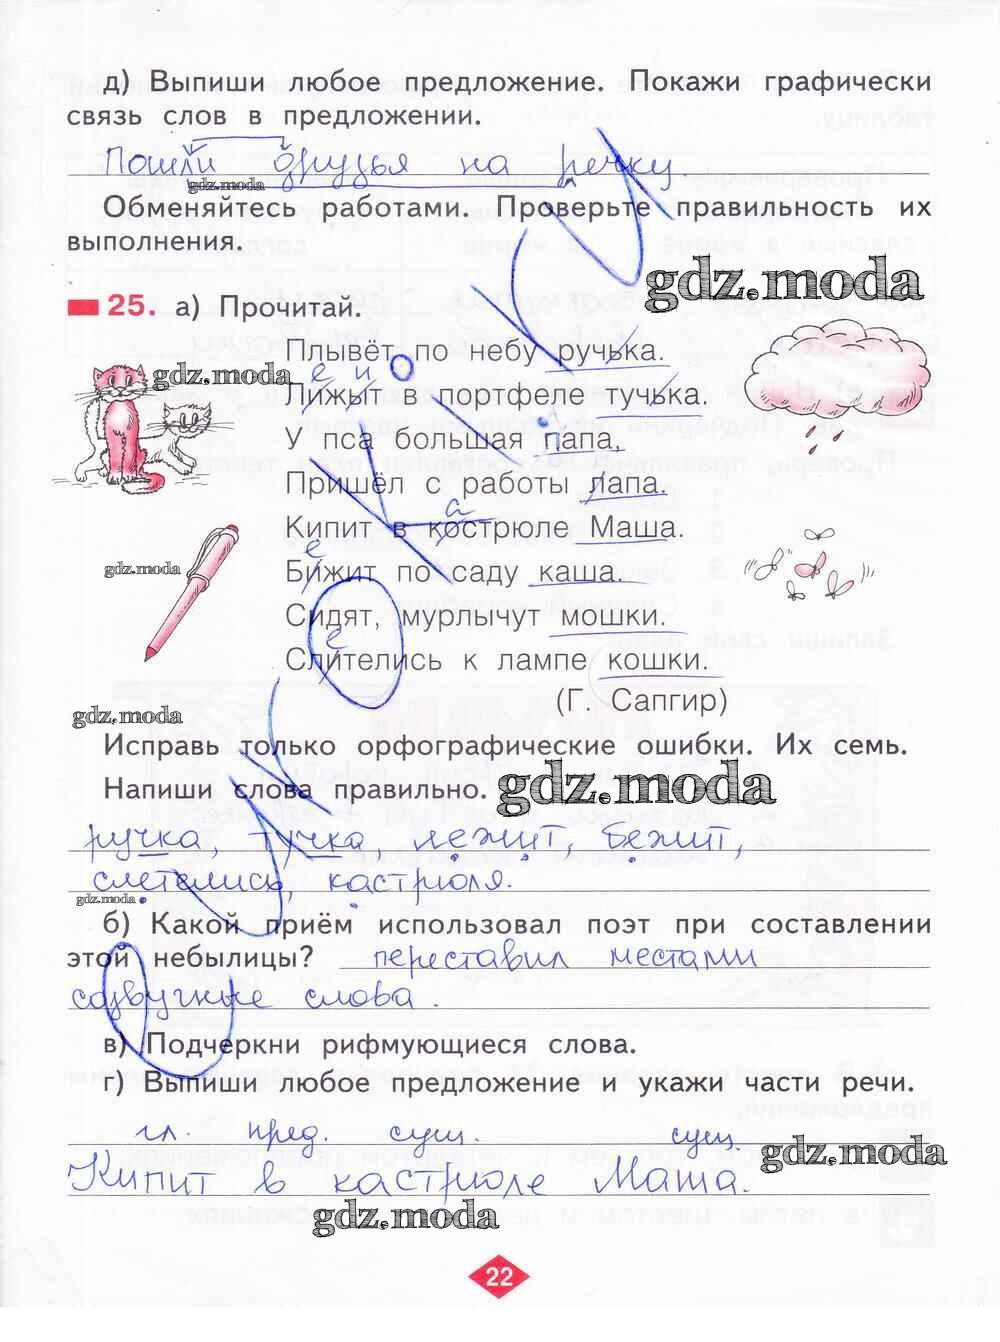 д) Выпиши любое предложение. Покажи графически
связь слов в предложении.
Пошли друзья на речку
gdz.moda
Обменяйтесь работами. Проверьте правильность их
выполнения.
gdz.moda
25. а) Прочитай.
Плывёт по небу ручька.
gdz.moda
е и
Лижыт в портфеле тучька.
У пса большая папа.
Пришёл с работы лапа.
а
Кипит в кострюле Маша.
е
gdz.moda
Бижит по саду каша.
Сидят, мурлычут мошки.
е
Слителись к лампе кошки.
(Г. Сапгир)
gdz.moda
Исправь только орфографические ошибки. Их семь.
Напиши слова правильно.
gdz.moda
ручка, тучка, лежит, бежит,
слетелись, кастрюля.
gdz.moda
б) Какой приём использовал поэт при составлении
этой небылицы? переставил местами
созвучные слова.
в) Подчеркни рифмующиеся слова.
г) Выпиши любое предложение и укажи части речи.
гл. пред. сущ. сущ.
gdz.moda
Кипит в кастрюле Маша.
gdz.moda
22